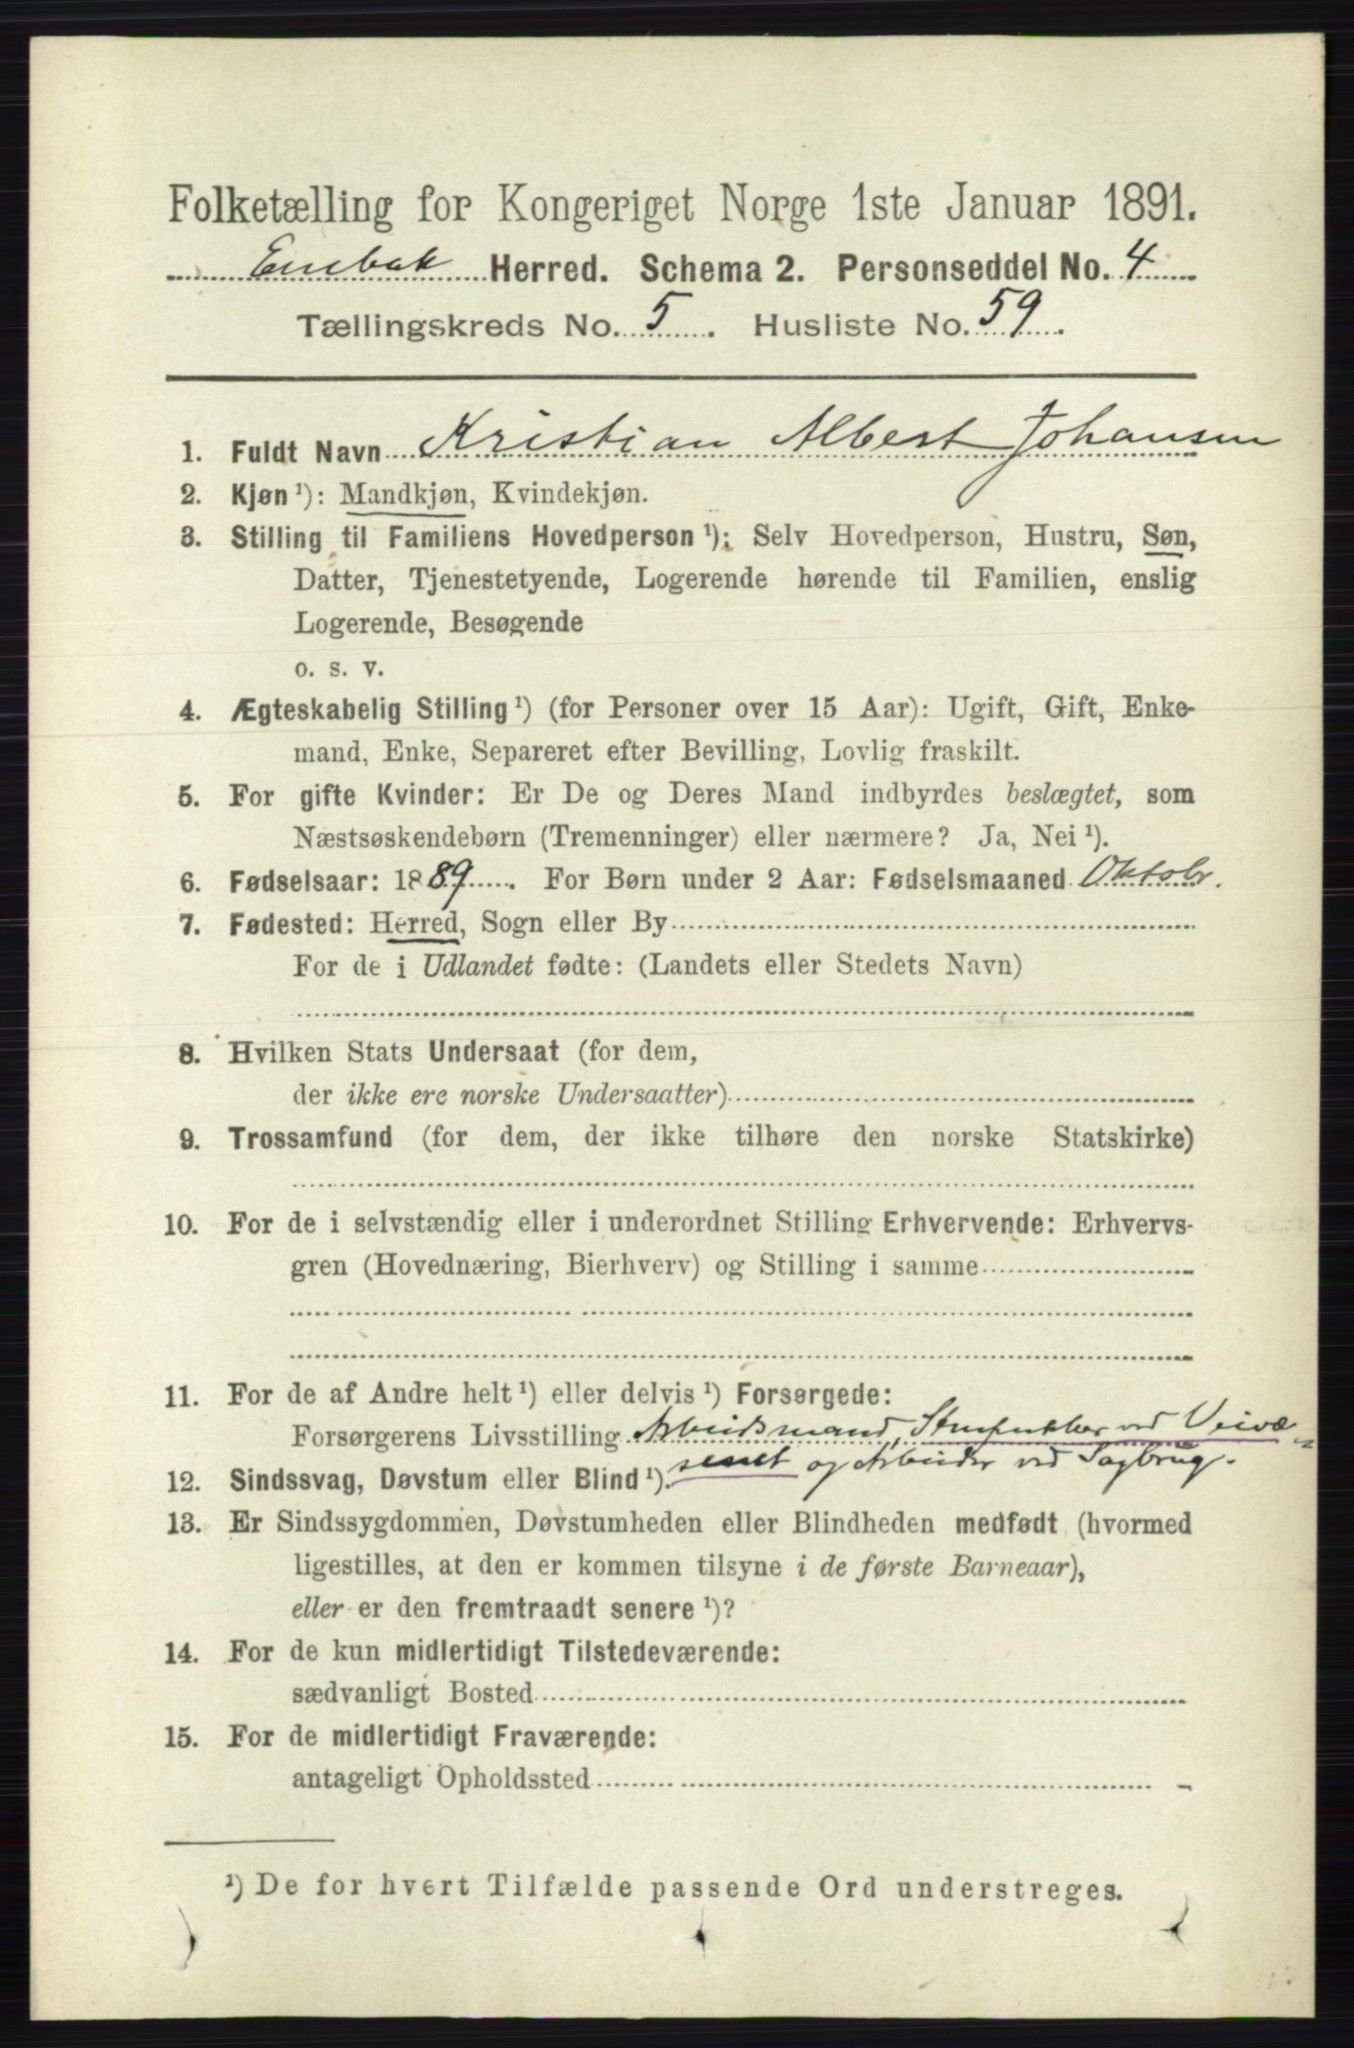 Folketælling for Kongeriget Norge 1ste Januar 1891.
Enebak Herred. Schema 2. Personseddel No. 4
Tællingskreds No. 5. Husliste No. 59.
1. Fuldt Navn Kristian Albert Johansen
2. Kjøn ¹): Mandkjøn, Kvindekjøn.
3. Stilling til Familiens Hovedperson ¹): Selv Hovedperson, Hustru, Søn,
Datter, Tjenestetyende, Logerende hørende til Familien, enslig
Logerende, Besøgende
o. s. v.
4. Ægteskabelig Stilling ¹) (for Personer over 15 Aar): Ugift, Gift, Enke-
mand, Enke, Separeret efter Bevilling, Lovlig fraskilt.
5. For gifte Kvinder: Er De og Deres Mand indbyrdes beslægtet, som
Næstsøskendebørn (Tremenninger) eller nærmere? Ja, Nei ¹).
6. Fødselsaar: 1889. For Børn under 2 Aar: Fødselsmaaned Oktobr.
7. Fødested: Herred, Sogn eller By
For de i Udlandet fødte: (Landets eller Stedets Navn)
8. Hvilken Stats Undersaat (for dem,
der ikke ere norske Undersaatter)
9. Trossamfund (for dem, der ikke tilhøre den norske Statskirke)
10. For de i selvstændig eller i underordnet Stilling Erhvervende: Erhvervs-
gren (Hovednæring, Bierhverv) og Stilling i samme
11. For de af Andre helt ¹) eller delvis ¹) Forsørgede:
Forsørgerens Livsstilling Arbeidsmand, Stenpukker ved Veivæ-
senet og Arbeider ved Sagbrug.
12. Sindssvag, Døvstum eller Blind ¹).
13. Er Sindssygdommen, Døvstumheden eller Blindheden medfødt (hvormed
ligestilles, at den er kommen tilsyne i de første Barneaar),
eller er den fremtraadt senere ¹)?
14. For de kun midlertidigt Tilstedeværende:
sædvanligt Bosted
15. For de midlertidigt Fraværende:
antageligt Opholdssted
¹) De for hvert Tilfælde passende Ord understreges.